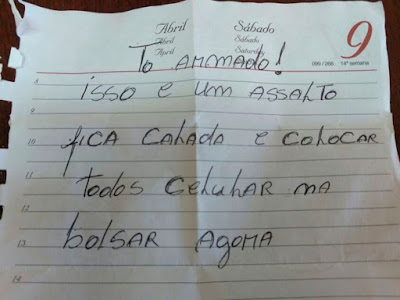 Abril Sábado
Abril Sábado
April Saturday
9
099/266 14ª semana
To Armado!
9
isso e um assalto
10
fica calada e colocar
11
todos celular na
12
bolsar agora
13
14